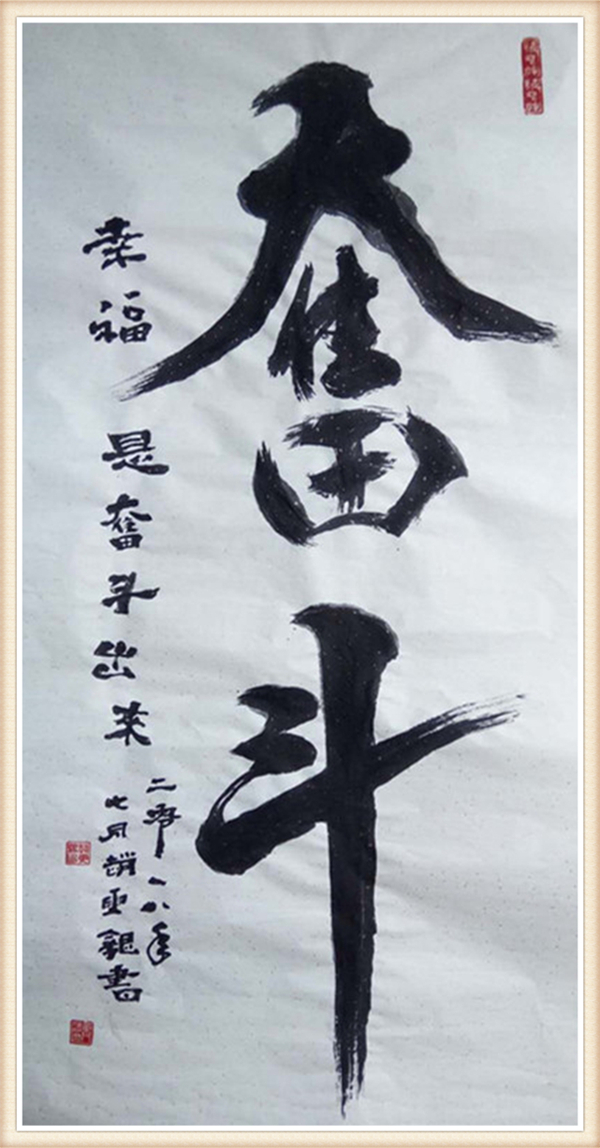 奮斗
幸福是奮斗出来
二零一八年
七月趙書